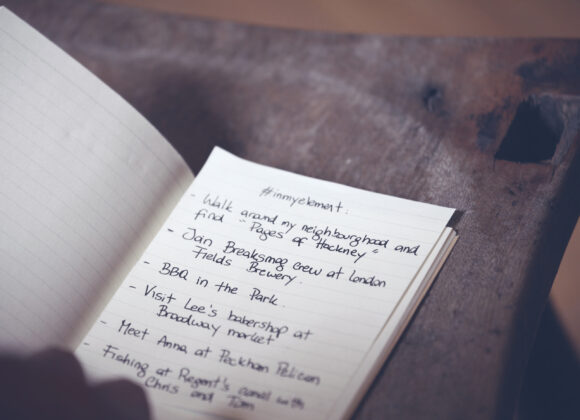 #inmyelement:
- Walk around my neighbourghood and
find "Pages of Hackney"
- Join Breaksmag crew at London
Fields Brewery.
- BBQ in the Park.
- Visit Lee's babershop at
Broadway market
- Meet Anna at Peckham Pelican
- Fishing at Regent's canal with
Chris and Tom